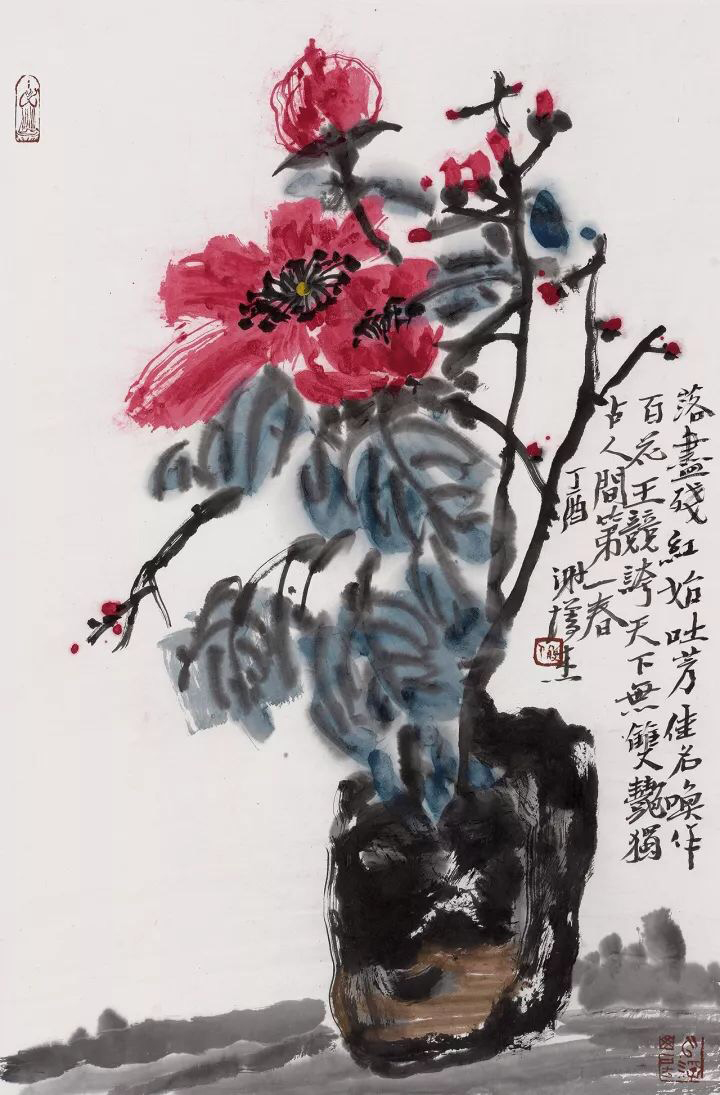 落盡殘紅始吐芳佳名喚作
百花王競誇天下無雙艷獨
占人間第一春
丁酉